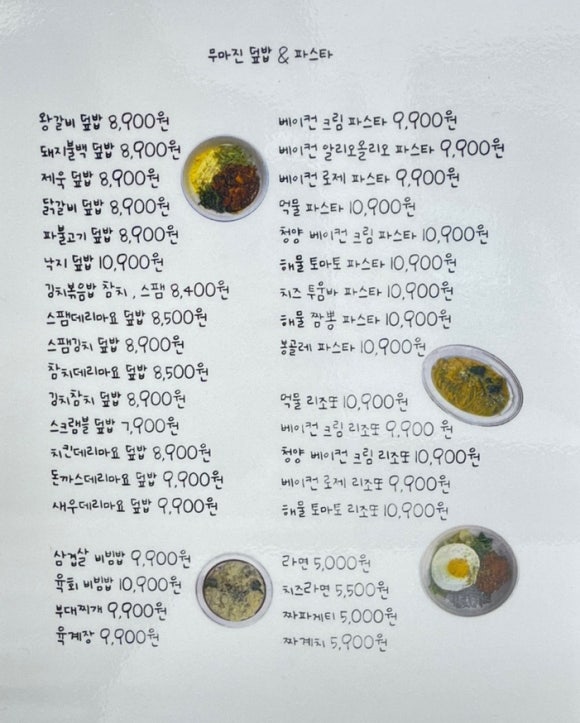 무마진 덮밥 & 파스타
왕갈비 덮밥 8,900원
돼지불백 덮밥 8,900원
제육 덮밥 8,900원
닭갈비 덮밥 8,900원
파불고기 덮밥 8,900원
낙지 덮밥 10,900원
김치볶음밥 참치, 스팸 8,400원
스팸데리마요 덮밥 8,500원
스팸김치 덮밥 8,900원
참치데리마요 덮밥 8,500원
김치참치 덮밥 8,900원
스크램블 덮밥 7,900원
치킨데리마요 덮밥 8,900원
돈까스데리마요 덮밥 9,900원
새우데리마요 덮밥 9,900원
삼겹살 비빔밥 9,900원
육회 비빔밥 10,900원
부대찌개 9,900원
육계장 9,900원
베이컨 크림 파스타 9,900원
베이컨 알리오올리오 파스타 9,900원
베이컨 로제 파스타 9,900원
먹물 파스타 10,900원
청양 베이컨 크림 파스타 10,900원
해물 토마토 파스타 10,900원
치즈 투움바 파스타 10,900원
해물 짬뽕 파스타 10,900원
봉골레 파스타 10,900원
먹물 리조또 10,900원
베이컨 크림 리조또 9,900 원
청양 베이컨 크림 리조또 10,900원
베이컨 로제 리조또 9,900원
해물 토마토 리조또 10,900원
라면 5,000원
치즈라면 5,500원
짜파게티 5,000원
짜계치 5,900원